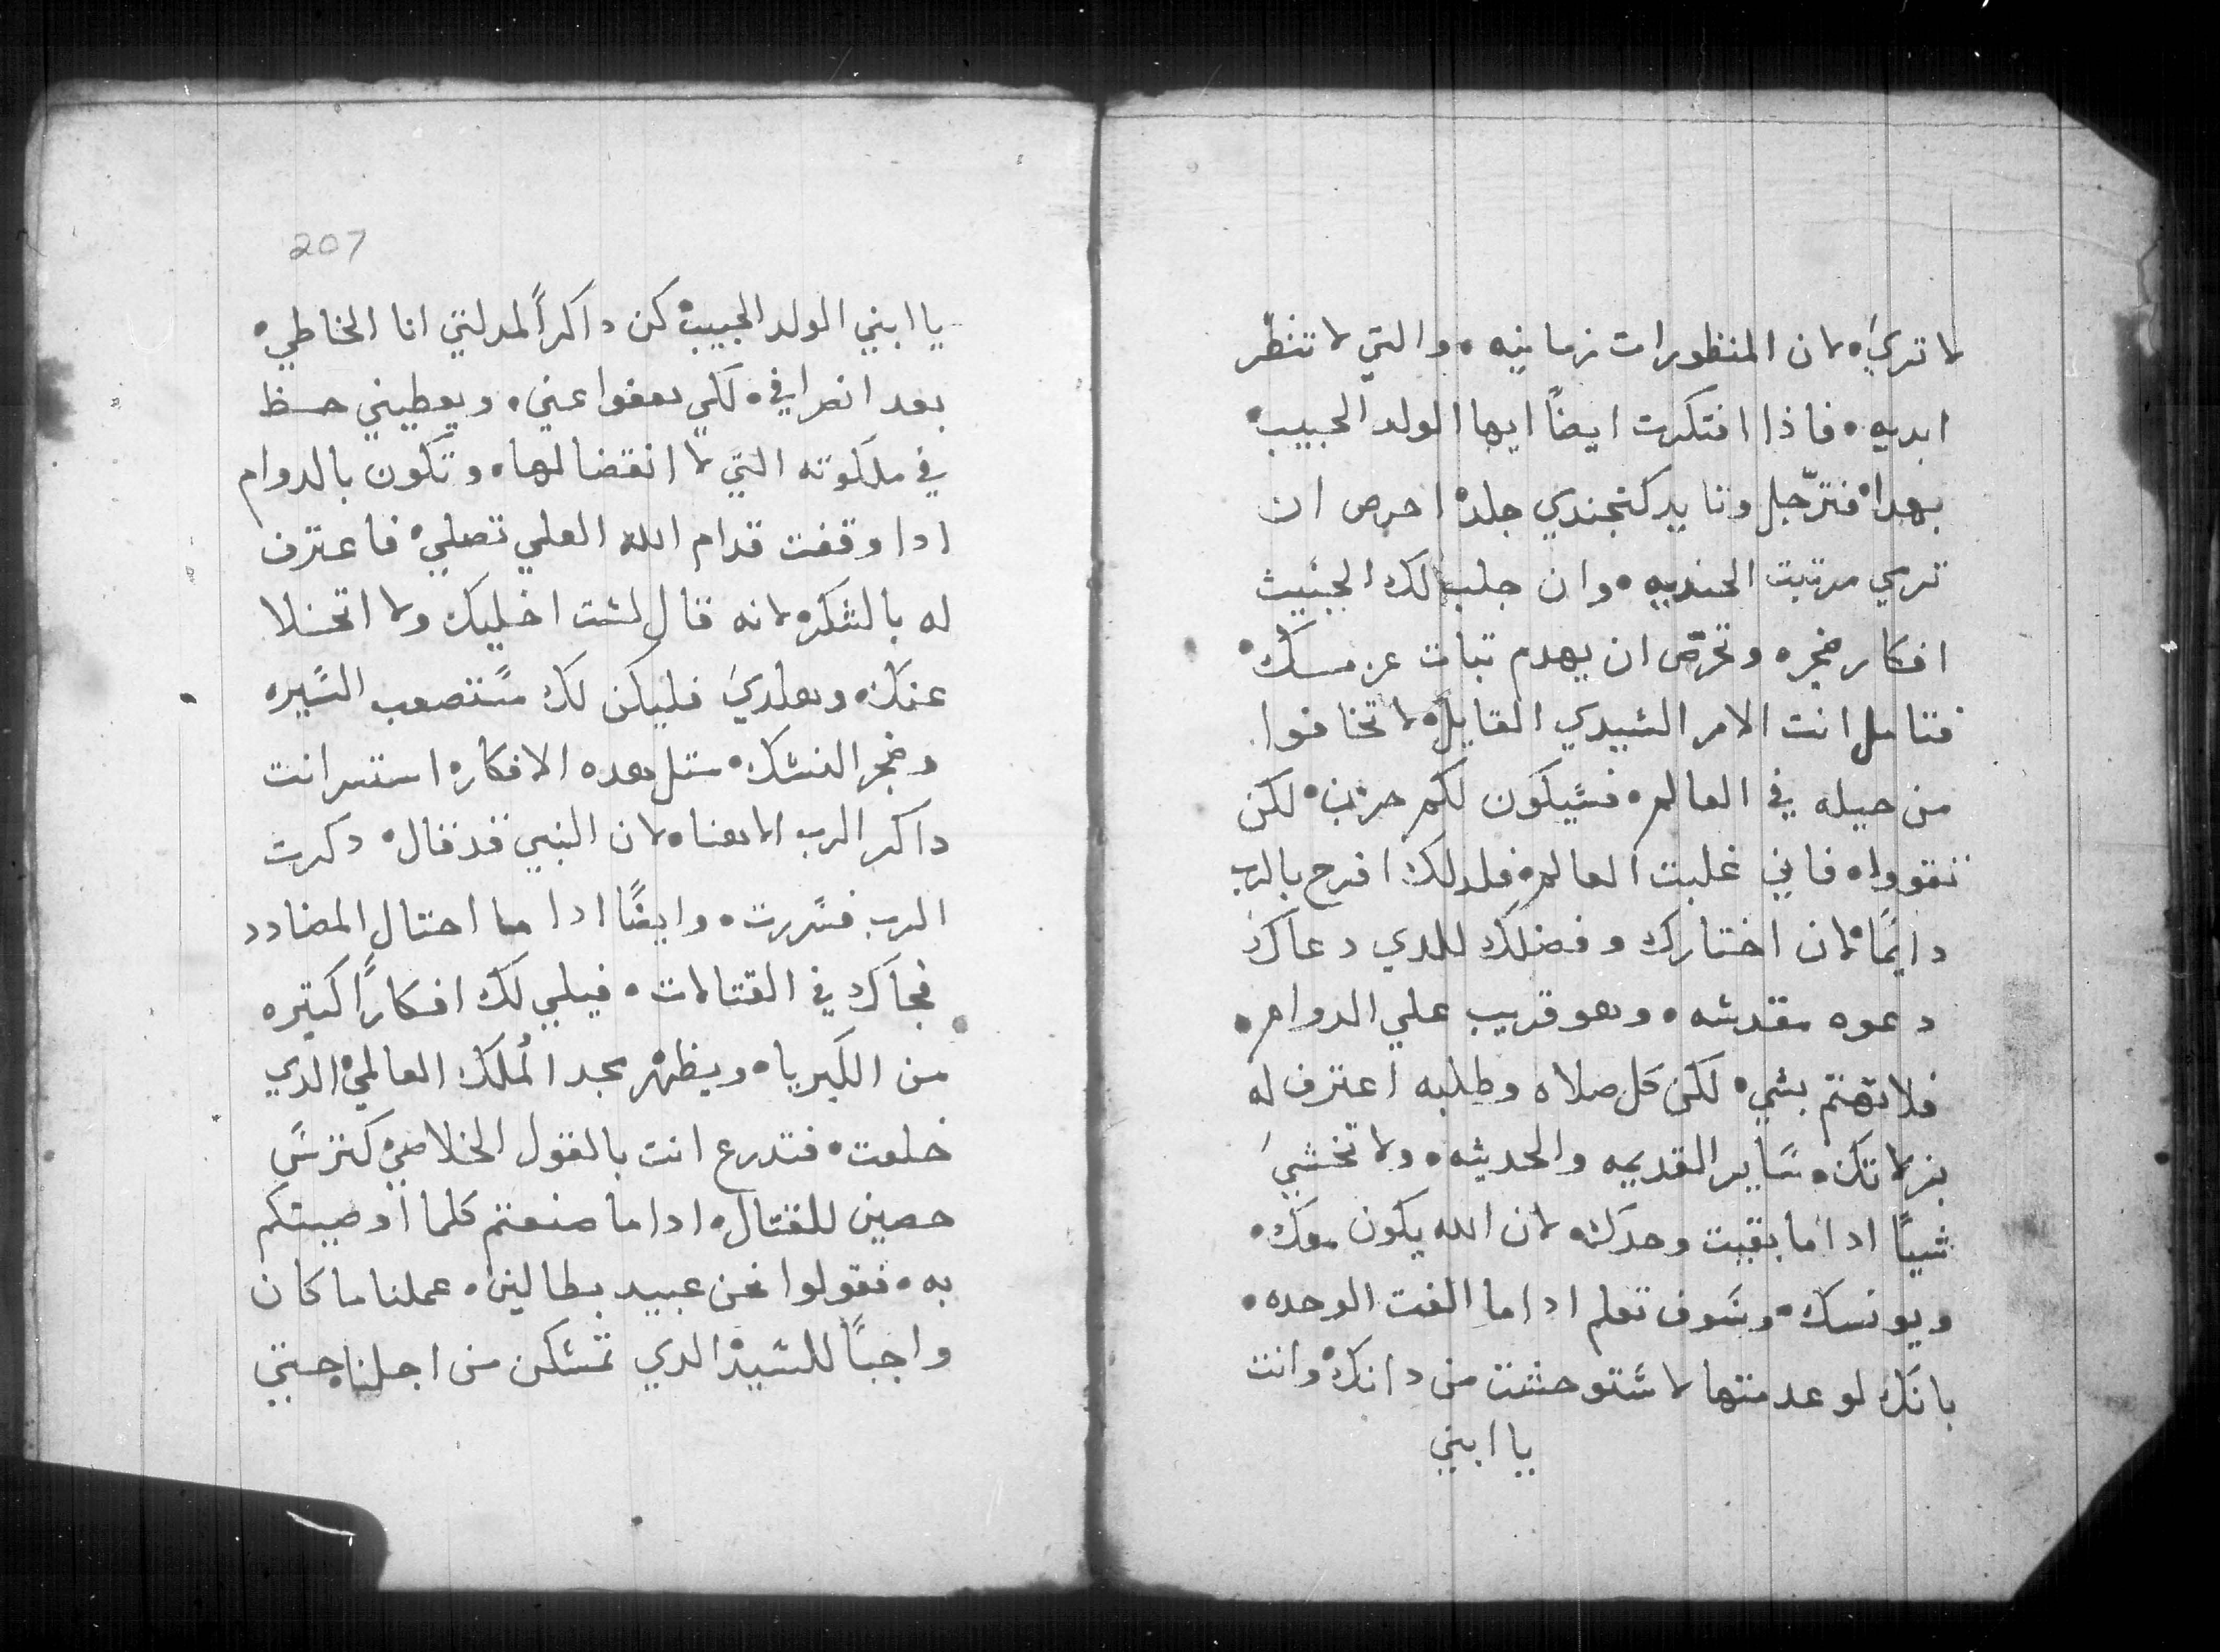 لا تريَ. لان المنظورات زمانيه. والتي لا تنظر
ابديه. فاذا افتكرت ايضاً ايها الولد الحبيب.
بهدا. فترّجل وتايد كنجندي جلد. احرص ان
ترمي مرتبت الجنديه. وان جلب لك الخبيث
افكار ضجره وتحرّص ان يهدم تبات عزمك.
فتامل انت الامر السيدي القايل. لا تخافوا
من حيله في العالم. فسيكون لكم حزن. لكن
تقووا. فاني غلبت العالم. فلدلك افرح بالرب
دايمًا. لان اختارك وفضلك للدي دعاك
دعوه مقدسه. وهو قريب علي الدوام.
فلا تهتم بشي. لكن كل صلاه وطلبه اعترف له
بزلاتك. سَاير القديمه والحديثه. ولا تخشيَ
شيياً اداما بقيت وحدك. لان الله يكون معك.
ويونسك. وسَوف تعلم اداما الفت الوحده.
بانك لو عدمتها لاستوحشت من داتك. وانت
يا ابني
207
يا ابني الولد الحبيب. كن داكراً لمدلتي انا الخاطي.
بعد انصرافي. لكي يعفوا عني. ويعطيني حظ
في ملكوته التي لا انقضا لها. وتكون بالدوام
ادا وقفت قدام الله العلي تصلي. فاعترف
له بالشكر. لانه قال لست اخليك ولا اتخلا
عنك. وهلديَ فليكن لك مستصعب السَيره
وضجر النسك. متل هده الافكار. استتر انت
داكر الرب الاهنا. لان النبي قد قال. دكرت
الرب فسَررت. وايضًا ادا ما احتال المضادد
فجاك في القتالات. فيلبي لك افكارًا كتيره
من الكبريا. ويظهر مجد المُلك العالمي. الدي
خلعت. فتدرع انت بالقول الخلاصي. كترسَ
حصين للقتال. اداما صنعتم كلما اوصيتكم
به. فقولوا نحن عبيد بطالين. عملنا ما كان
واجباً للسَيد. الدي تمسكن من اجلنا. حتي